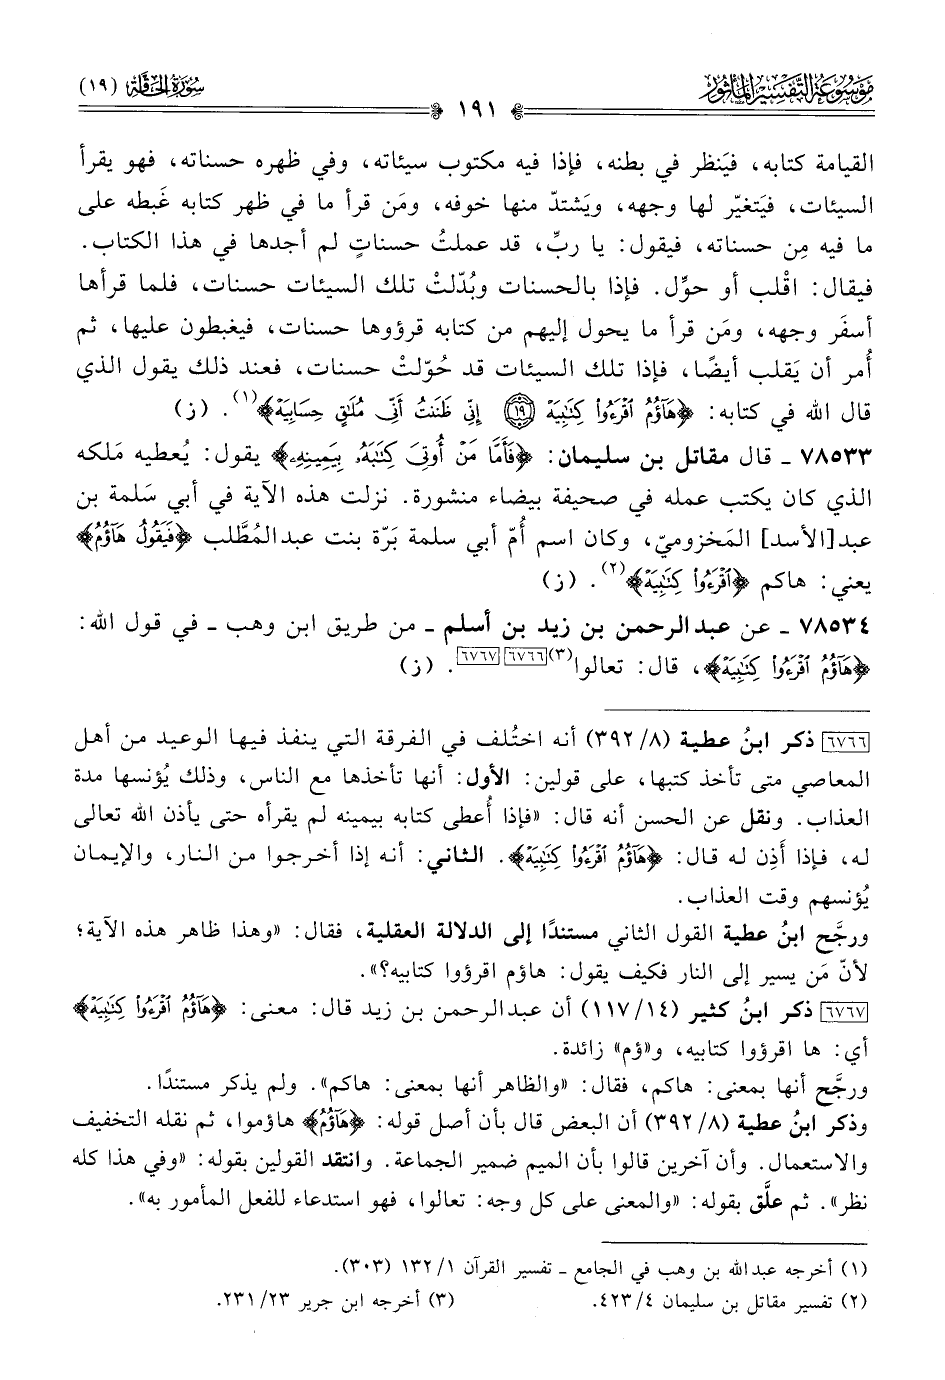 موسوعة التفسير المأثور
سورة الحاقة (١٩)
١٩١
القيامة كتابه، فيَنظر في بطنه، فإذا فيه مكتوب سيئاته، وفي ظهره حسناته، فهو يقرأ
السيئات، فيَتغيّر لها وجهه، ويَشتدّ منها خوفه، ومَن قرأ ما في ظهر كتابه غَبطه على
ما فيه مِن حسناته، فيقول: يا ربِّ، قد عملتُ حسناتٍ لم أجدها في هذا الكتاب.
فيقال: اقْلب أو حوِّل. فإذا بالحسنات وبُدّلتْ تلك السيئات حسنات، فلما قرأها
أسفَر وجهه، ومَن قرأ ما يحول إليهم من كتابه قرؤوها حسنات، فيغبطون عليها، ثم
أُمر أن يَقلب أيضًا، فإذا تلك السيئات قد حُوّلتْ حسنات، فعند ذلك يقول الذي
قال الله في كتابه: ﴿هَآؤُمُ ٱقْرَءُوا۟ كِتَٰبِيَهْ ۝١٩ إِنِّى ظَنَنتُ أَنِّى مُلَٰقٍ حِسَابِيَهْ﴾(١). (ز)
٧٨٥٣٣ ـ قال مقاتل بن سليمان: ﴿فَأَمَّا مَنْ أُوتِىَ كِتَٰبَهُۥ بِيَمِينِهِۦ﴾ يقول: يُعطيه مَلكه
الذي كان يكتب عمله في صحيفة بيضاء منشورة. نزلت هذه الآية في أبي سَلمة بن
عبد[الأسد] المَخزوميّ، وكان اسم أُمّ أبي سلمة بَرّة بنت عبدالمُطَّلب ﴿فَيَقُولُ هَآؤُمُ﴾
يعني: هاكم ﴿ٱقْرَءُوا۟ كِتَٰبِيَهْ﴾(٢). (ز)
٧٨٥٣٤ ـ عن عبدالرحمن بن زيد بن أسلم ـ من طريق ابن وهب ـ في قول الله:
﴿هَآؤُمُ ٱقْرَءُوا۟ كِتَٰبِيَهْ﴾، قال: تعالوا(٣)[٦٧٦٦][٦٧٦٧]. (ز)
[٦٧٦٦] ذكر ابنُ عطية (٣٩٢/٨) أنه اختُلف في الفرقة التي ينفذ فيها الوعيد من أهل
المعاصي متى تأخذ كتبها، على قولين: الأول: أنها تأخذها مع الناس، وذلك يُؤنسها مدة
العذاب. ونقل عن الحسن أنه قال: «فإذا أُعطى كتابه بيمينه لم يقرأه حتى يأذن الله تعالى
له، فإذا أَذِن له قال: ﴿هَآؤُمُ ٱقْرَءُوا۟ كِتَٰبِيَهْ﴾. الثاني: أنه إذا أخرجوا من النار، والإيمان
يُؤنسهم وقت العذاب.
ورجَّح ابنُ عطية القول الثاني مستندًا إلى الدلالة العقلية، فقال: «وهذا ظاهر هذه الآية؛
لأنّ مَن يسير إلى النار فكيف يقول: هاؤم اقرؤوا كتابيه؟».
[٦٧٦٧] ذكر ابنُ كثير (١١٧/١٤) أن عبدالرحمن بن زيد قال: معنى: ﴿هَآؤُمُ ٱقْرَءُوا۟ كِتَٰبِيَهْ﴾
أي: ها اقرؤوا كتابيه، و«ؤم» زائدة.
ورجَّح أنها بمعنى: هاكم، فقال: «والظاهر أنها بمعنى: هاكم». ولم يذكر مستندًا.
وذكر ابنُ عطية (٣٩٢/٨) أن البعض قال بأن أصل قوله: ﴿هَآؤُمُ﴾ هاؤموا، ثم نقله التخفيف
والاستعمال. وأن آخرين قالوا بأن الميم ضمير الجماعة. وانتقد القولين بقوله: «وفي هذا كله
نظر». ثم علَّق بقوله: «والمعنى على كل وجه: تعالوا، فهو استدعاء للفعل المأمور به».
(١) أخرجه عبدالله بن وهب في الجامع ـ تفسير القرآن ١٣٢/١ (٣٠٣).
(٢) تفسير مقاتل بن سليمان ٤٢٣/٤.
(٣) أخرجه ابن جرير ٢٣١/٢٣.